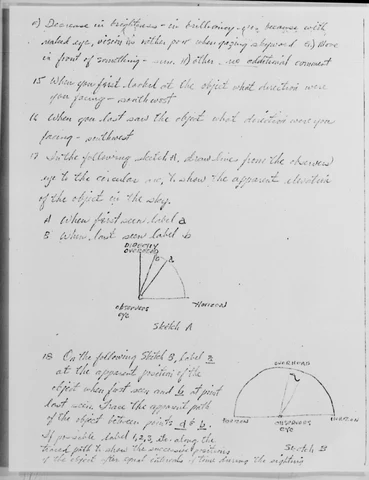 g) Decrease in brightness - in brilliancy - yes because with
naked eye, vision is rather poor when gazing skyward h) Move
in front of something - sun. i) other - no additional comment
15 When you first looked at the object what direction were
you facing - northwest
16 When you last saw the object what direction were you
facing - southwest
17 In the following sketch A, draw lines from the observers
eye to the circular arc, to show the apparent elevation
of the object in the sky.
A When first seen label a
B When last seen label b
DIRECTLY
OVERHEAD
b a
OBSERVERS
EYE
HORIZON
Sketch A
18 On the following Sketch B, label a
at the apparent position of the
object when first seen and b at point
last seen. Trace the apparent path
of the object between points a & b.
If possible label 1, 2, 3, etc. along the
traced path to show the successive positions
of the object after equal intervals of time during the sighting
OVERHEAD
HORIZON
OBSERVERS
EYE
HORIZON
Sketch B